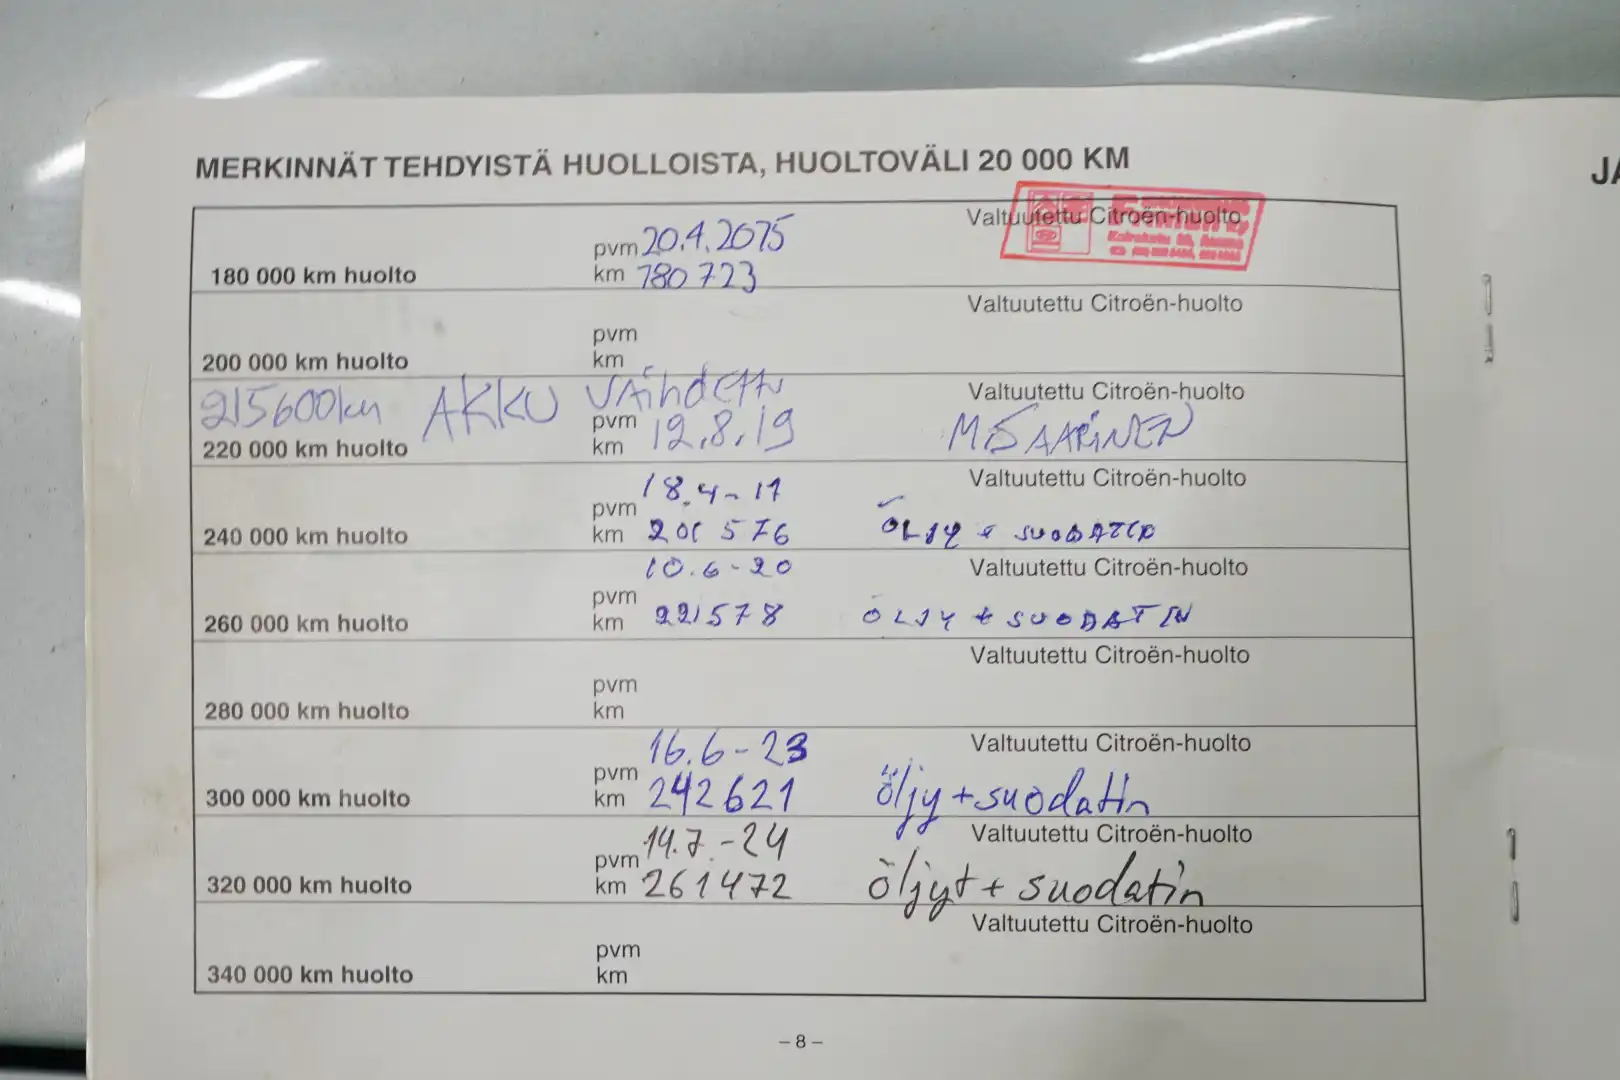 MERKINNÄT TEHDYISTÄ HUOLLOISTA, HUOLTOVÄLI 20 000 KM
JA
Valtuutettu Citroën-huolto
pvm 20.4.2015
180 000 km huolto km 180 723
Valtuutettu Citroën-huolto
pvm
200 000 km huolto km
215600km AKKU VAihdettu
Valtuutettu Citroën-huolto
pvm 12.8.19 M SAARINEN
220 000 km huolto km
Valtuutettu Citroën-huolto
pvm 18.4-17
240 000 km huolto km 201 576 ÖLJY + SUODATIN
Valtuutettu Citroën-huolto
pvm 10.6-20
260 000 km huolto km 221578 ÖLJY + SUODATIN
Valtuutettu Citroën-huolto
pvm
280 000 km huolto km
Valtuutettu Citroën-huolto
pvm 16.6-23
300 000 km huolto km 242621 öljy + suodatin
Valtuutettu Citroën-huolto
pvm 14.7.-24
320 000 km huolto km 261472 öljyt + suodatin
Valtuutettu Citroën-huolto
pvm
340 000 km huolto km
– 8 –